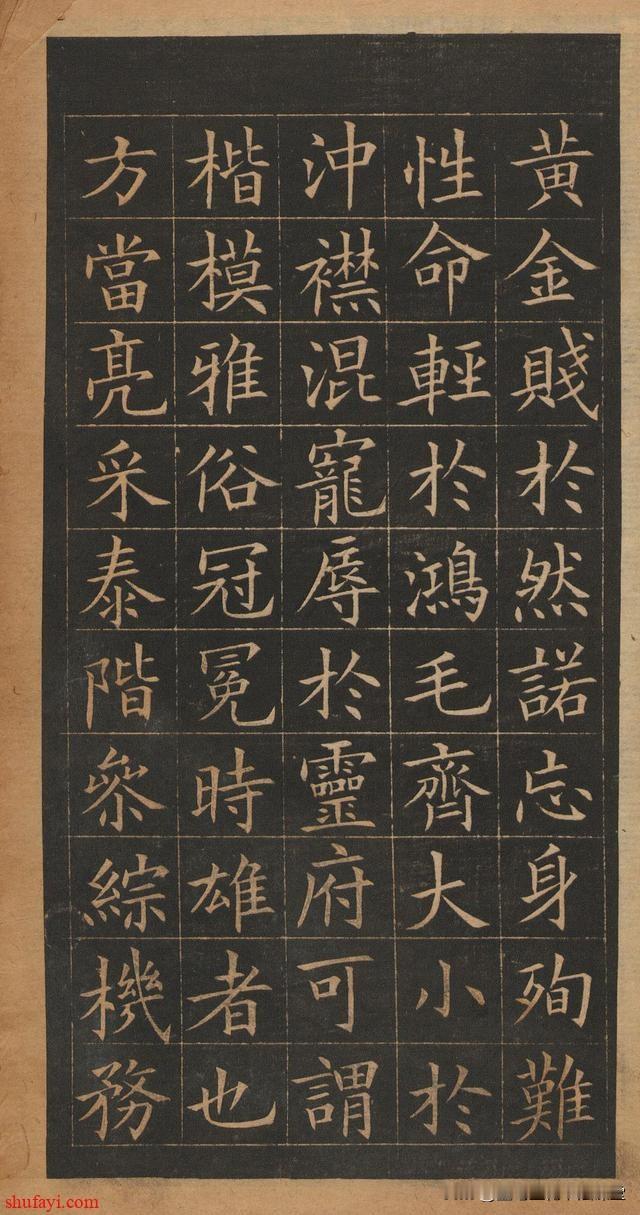 黄金賤於然諾忘身殉難
性命輕於鴻毛齊大小於
沖襟混寵辱於靈府可謂
楷模雅俗冠冕時雄者也
方當亮采泰階參綜機務
shufayi.com